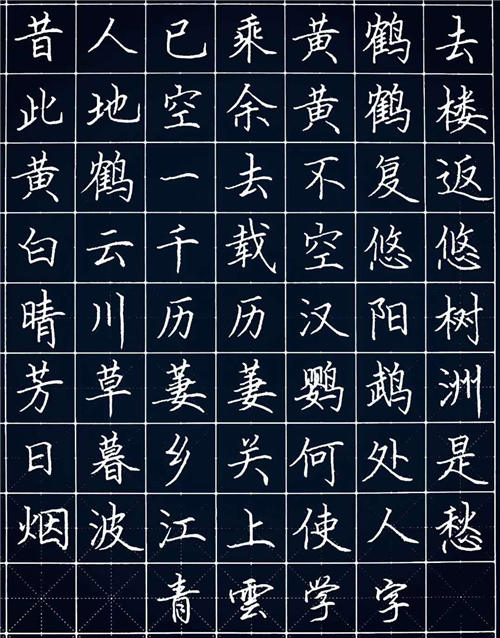 昔人已乘黄鹤去
此地空余黄鹤楼
黄鹤一去不复返
白云千载空悠悠
晴川历历汉阳树
芳草萋萋鹦鹉洲
日暮乡关何处是
烟波江上使人愁
青雲学字